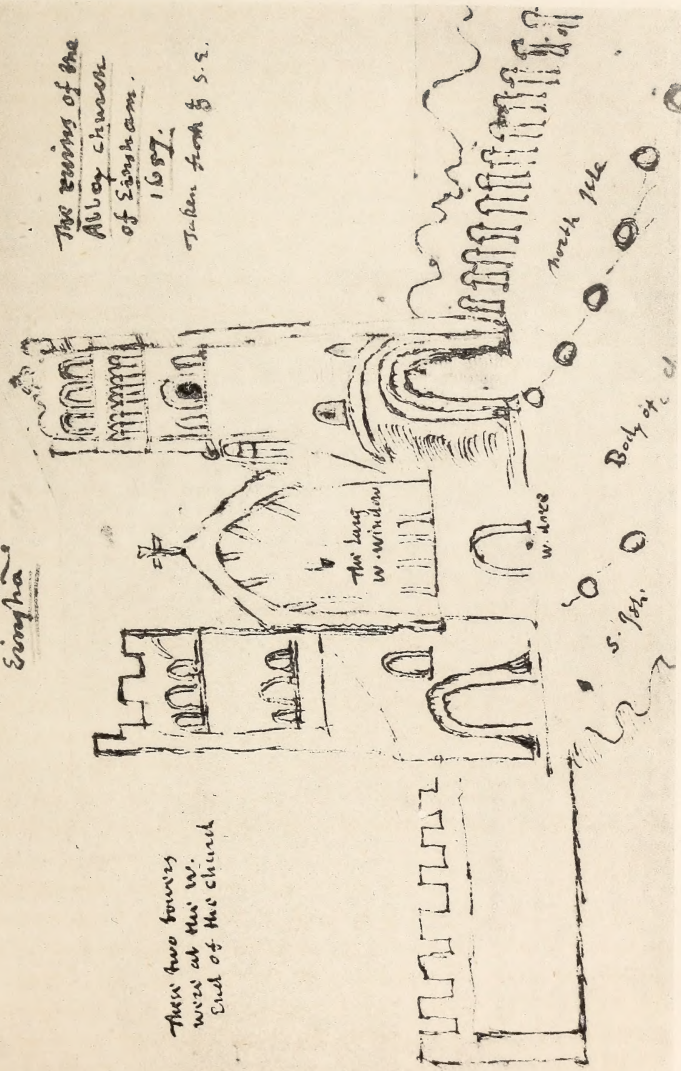 Eingha
The ruins of the
Abbey church
of Einsham.
1657.
Taken from ye S.E.
These two towers
were at the W.
End of the church
The Long
W. window
W. dore
north Isle
Body of
S. Ish.